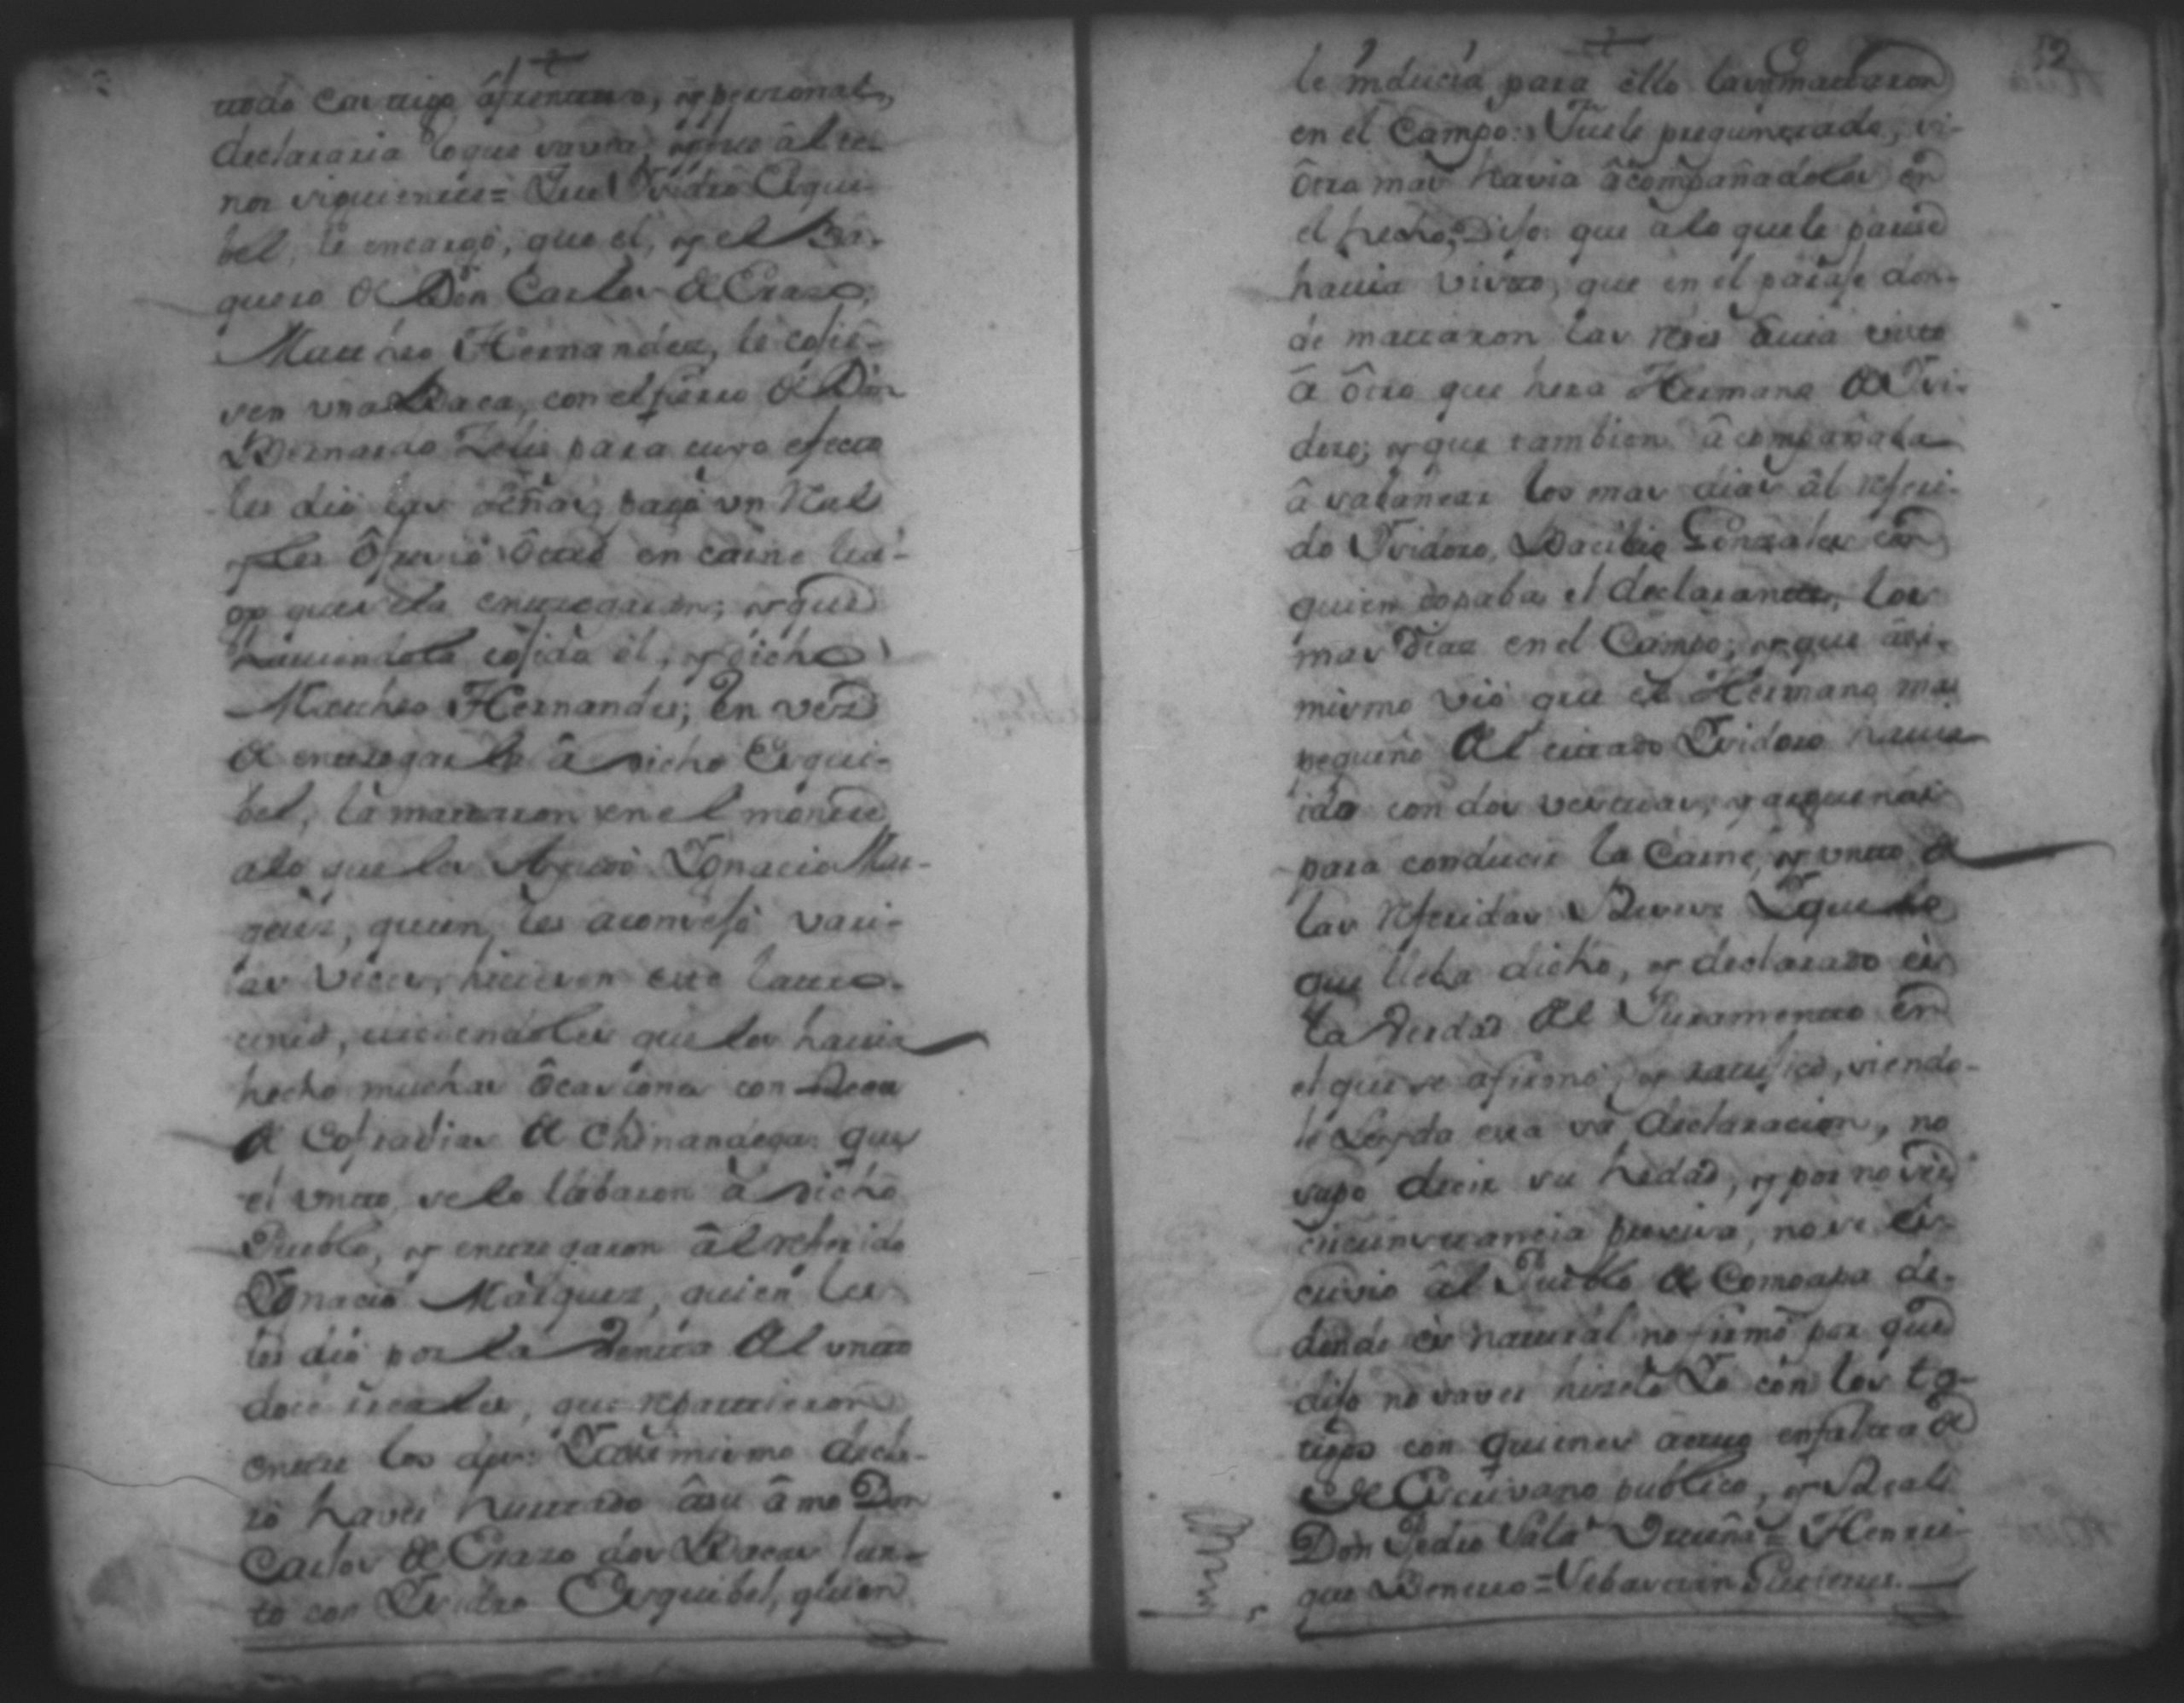 todo castigo afrentoso, y personal,
declararia lo que savia y fue al te-
nor siguiente= Que Ysidro Esqui-
bel, le encargó, que el, y el Ba-
quero de Don Carlos de Erazo,
Matheo Hernandez, le cojie-
sen una Baca, con el fierro de Don
Bernardo Zelis para cuyo efecto
les dió las señas, pagó un Real
y les Ofreció Ocho en carne lue-
go que se la entregaran; y que
haviendola cojido él, y dicho
Matheo Hernandes, En vez
de entregarla â dicho Esqui-
bel, la mataron en el monte
a lo que les Ayudó Ygnacio Mar-
quez, quien, les aconsejó vari-
as veces, hicieron este latro-
cinio, diciendoles que los havia
hecho muchas Ocasiones con Reses
de Cofradias de Chinandega: que
el unto, se lo llebaron à dicho
Pueblo, y entregaron âl referido
Ygnacio Màrquez, quien les
les dió por la Benta del unto
doce rreales, que repartieron
entre los dos: Y asimismo decla-
ró haver hurtado âsu âmo Don
Carlos de Erazo dos Bacas jun-
to con Ysidro Esquibel, quien
12
le inducia para ello las mataron
en el Campo: Fuele preguntado, si
Otro mas havia âcompañadolos en
el hecho, Dijo: que à lo que le parece
havia visto, que en el paraje don-
de mataron las Reses avia visto
â ôtro que hera Hermano de Ysi-
doro; y que tambien âcompañaba
â sabanear los mas dias âl referi-
do Ysidoro, Bacilio Gonzales con
quien topaba el declarante, los
mas Dias en el Campo; y que asi-
mismo vió que el Hermano mas
pequeño del citado Ysidoro havia
ido con dos vestias, y arguenas
para conducir la Carne, y unto de
las referidas Reses: Y que lo
que lleba dicho, y declarado es
la Verdad del Juramento en
el que se afirmó, y ratificó, siendo-
le Leyda esta su declaracion, no
supo decir su hedad, y por no ser
circunstancia precisa, no se es-
cuvio âl Pueblo de Comoapa de-
donde es natural no firmó por que
dijo no saver hizelo Yo con los tes-
tigos con quienes actuo enfalta de
de Escrivano publico, y Real=
Don Pedro Henri-
que Sebastian Gutierrez.